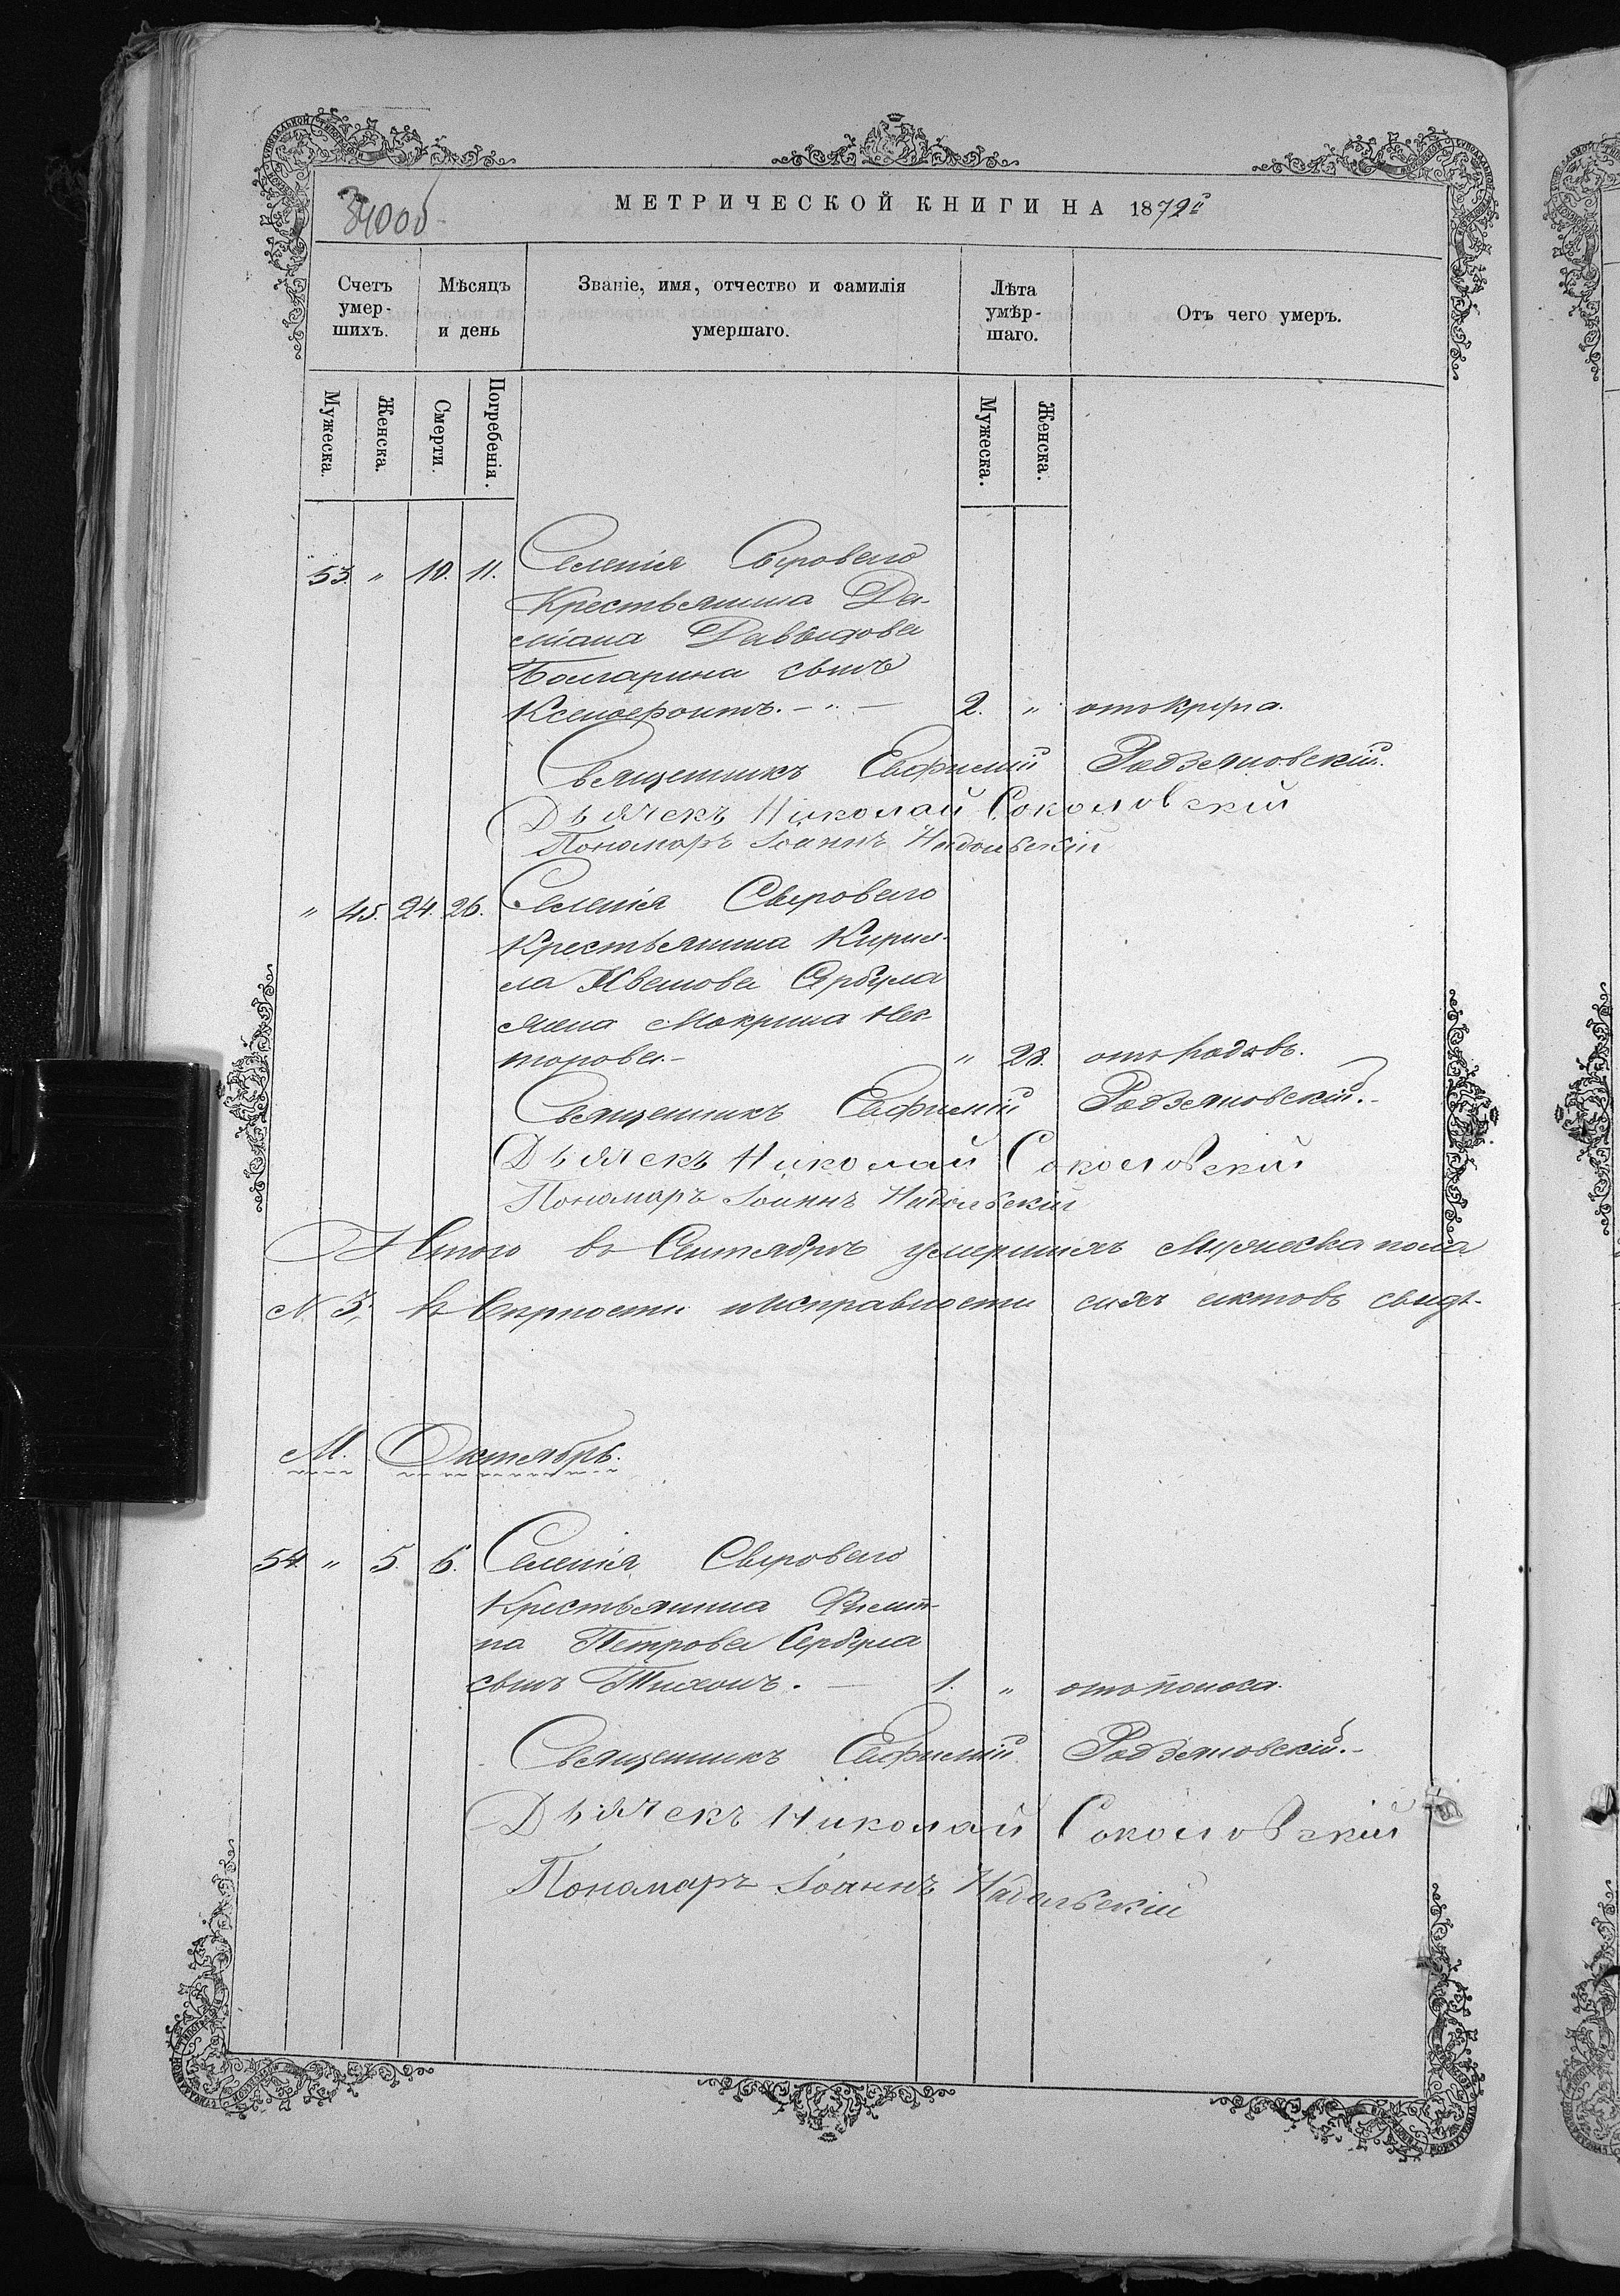 МЕТРИЧЕСКОЙ КНИГИ НА 1872й
Счетъ умер-шихъ.
Мѣсяцъ и день
Званіе, имя, отчество и фамилія умершаго.
Лѣта умѣр-шаго.
Отъ чего умеръ.
Мужеска.
Женска.
Смерти.
Погребенія.
Мужеска.
Женска.
53. " 10. 11. Селенія Сыроваго
Крестьянина Да-
міана Давыдова
Болгарина сынъ
Ксенофонтъ. — 2. " отъ крупа.
Священникъ Евфимій Радзяновскій.
Дьячекъ Николай Соколовскій
Пономаръ Іоаннъ Надольскій
" 45. 24. 26. Селенія Сыроваго
Крестьянина Кирил-
ла Иванова Сярбула
жена Мокрина Нес-
торова. — " 28. отъ родовъ.
Священникъ Евфимій Радзяновскій.
Дьячекъ Николай Соколовскій
Пономаръ Іоаннъ Надольскій
Итого въ Сентябрѣ умершихъ Мужеска пола
3, въ Вѣрности и исправности сихъ актовъ свидѣ-
М. Октябрь.
54. " 5. 6. Селенія Сыроваго
Крестьянина Филип-
па Петрова Сербула
сынъ Тихонъ. — 1. " отъ поноса.
Священникъ Евфимій Радзяновскій.
Дьячекъ Николай Соколовскій
Пономаръ Іоаннъ Надольскій